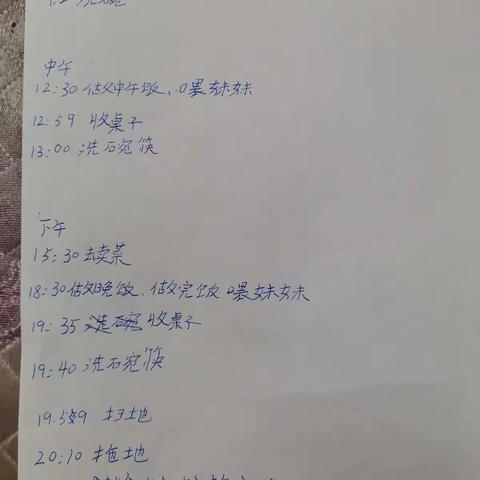 中午
12:30 做中午饭、喂妹妹
12:59 收桌子
13:00 洗碗筷
下午
15:30 去卖菜
18:30 做晚饭.做完饭喂妹妹
19:35 收桌子
19:40 洗碗筷
19.59 扫地
20:10 拖地